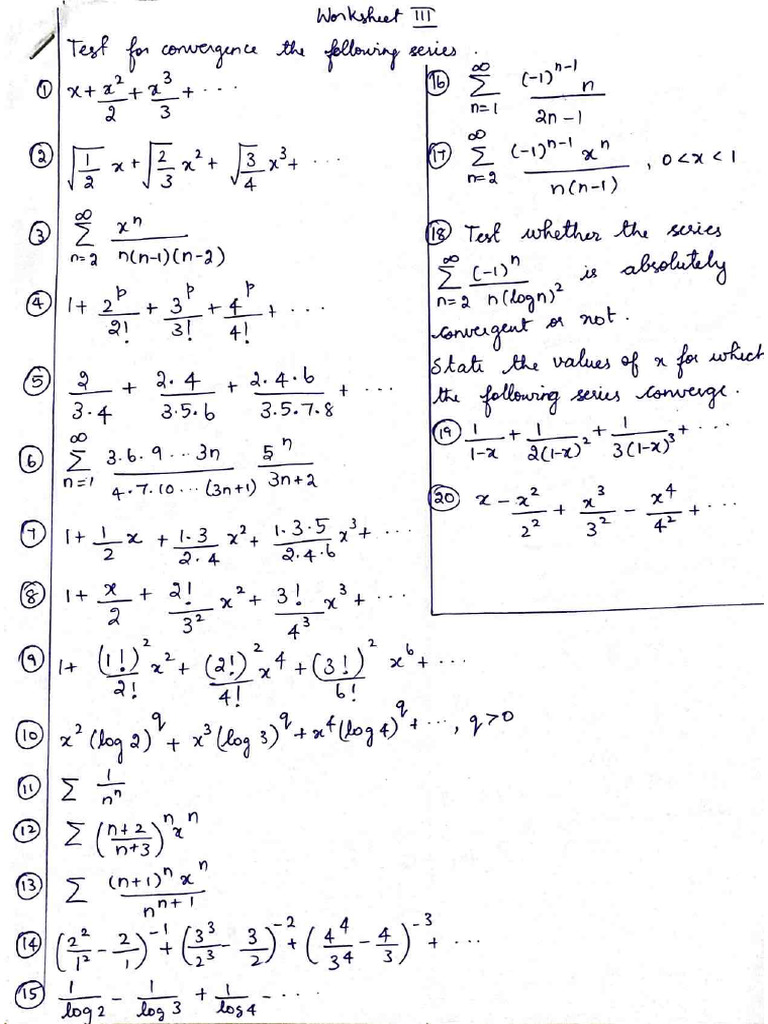 Worksheet III
Test for convergence the following series.
① x + x²/2 + x³/3 + ...
② √(1/2) x + √(2/3) x² + √(3/4) x³ + ...
③ ∞ Σ n=2 xⁿ / n(n-1)(n-2)
④ 1 + 2^p/2! + 3^p/3! + 4^p/4! + ...
⑤ 2/3.4 + 2.4/3.5.6 + 2.4.6/3.5.7.8 + ...
⑥ ∞ Σ n=1 3.6.9...3n / 4.7.10...(3n+1) 5ⁿ/3n+2
⑦ 1 + 1/2 x + 1.3/2.4 x² + 1.3.5/2.4.6 x³ + ...
⑧ 1 + x/2 + 2!/3² x² + 3!/4³ x³ + ...
⑨ 1 + (1!)²/2! x² + (2!)²/4! x⁴ + (3!)²/6! x⁶ + ...
⑩ x² (log 2)^q + x³ (log 3)^q + x⁴ (log 4)^q + ..., q>0
⑪ Σ 1/nⁿ
⑫ Σ (n+2/n+3)ⁿ xⁿ
⑬ Σ (n+1)ⁿ xⁿ / n^(n+1)
⑭ (2²/1² - 2/1)^-1 + (3³/2³ - 3/2)^-2 + (4⁴/3⁴ - 4/3)^-3 + ...
⑮ 1/log 2 - 1/log 3 + 1/log 4 - ...
⑯ ∞ Σ n=1 (-1)^(n-1) n / 2n-1
⑰ ∞ Σ n=2 (-1)^(n-1) xⁿ / n(n-1), 0<x<1
⑱ Test whether the series
∞ Σ n=2 (-1)ⁿ / n(log n)² is absolutely
convergent or not.
State the values of x for which
the following series converge.
⑲ 1/1-x + 1/2(1-x)² + 1/3(1-x)³ + ...
⑳ x - x²/2² + x³/3² - x⁴/4² + ...